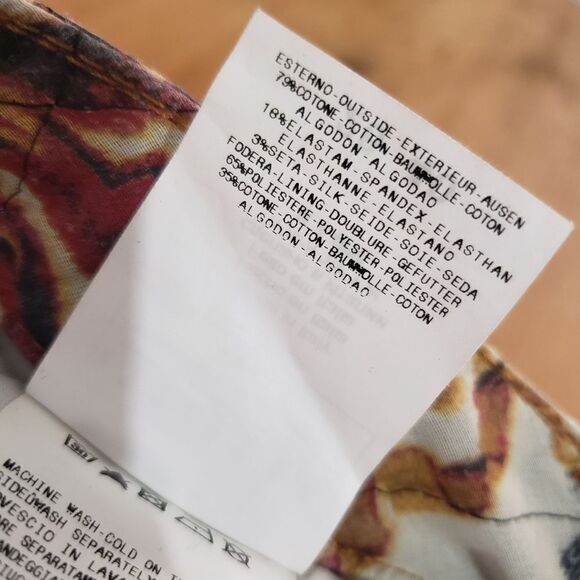 ESTERNO-OUTSIDE-EXTERIEUR-AUSEN
79%COTONE COTTON-BAUMWOLLE-COTON
ALGODON ALGODAO
18%ELASTAM-SPANDEX-ELASTHAN
ELASTHANNE-ELASTANO
3%SETA-SILK-SEIDE-SOIE-SEDA
FODERA-LINING-DOUBLURE-GEFUTTER
65%POLIESTERE POLYESTER-POLIESTER
35%COTONE-COTTON-BAUMWOLLE-COTON
ALGODON-ALGODAO
30
MACHINE WASH-COLD ON
WASH SEPARATELY
IN
SEPARATAN